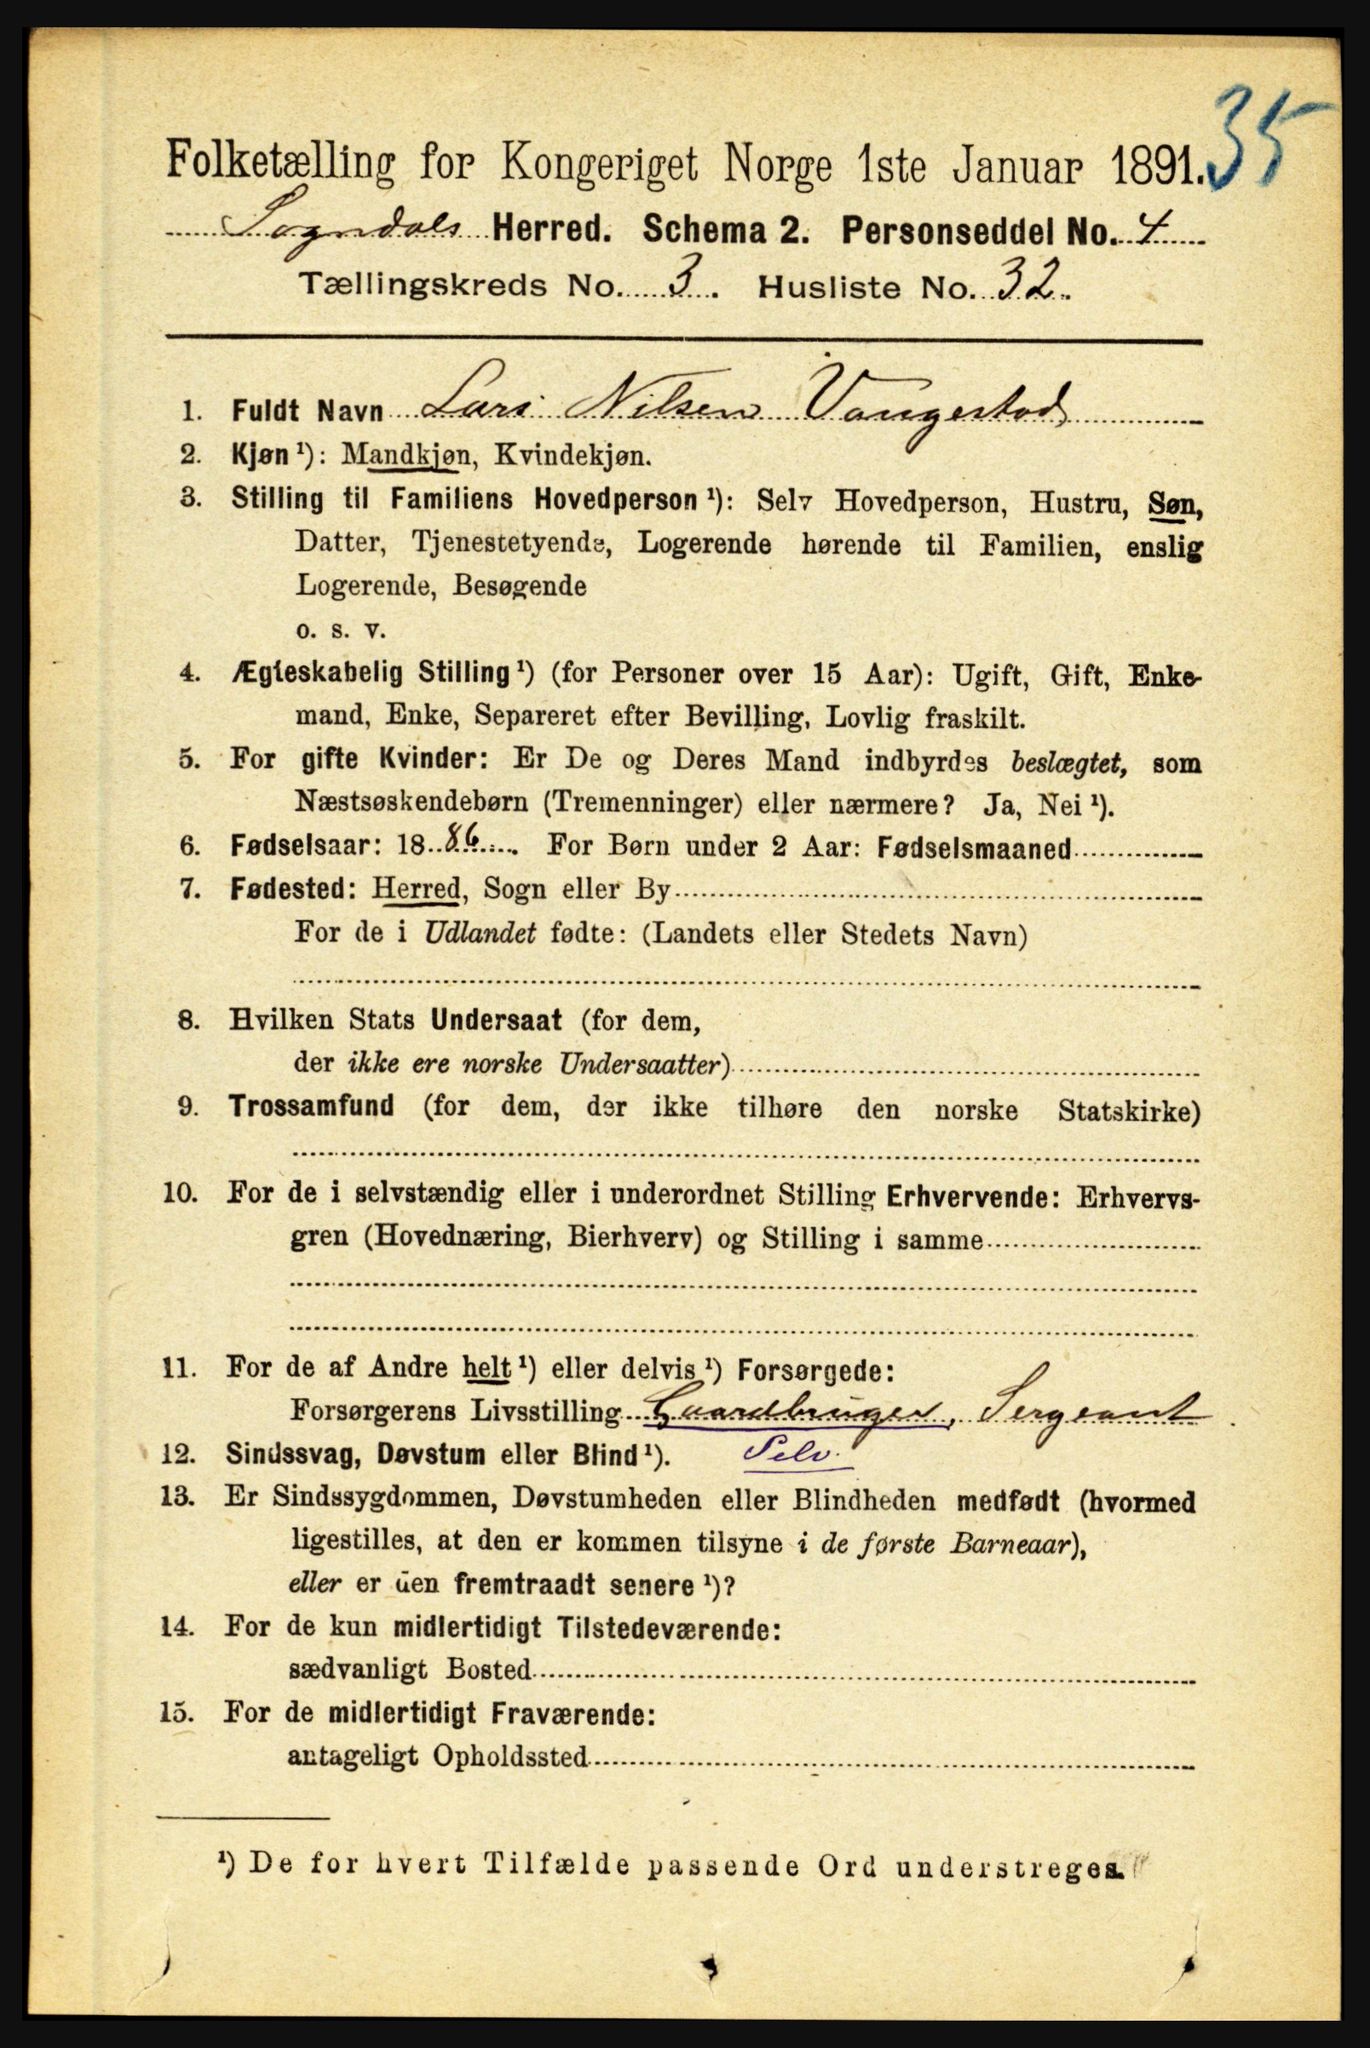 35
Folketælling for Kongeriget Norge 1ste Januar 1891.
Sogndals Herred. Schema 2. Personseddel No. 4
Tællingskreds No. 3. Husliste No. 32.
1. Fuldt Navn Lars Nilsen Vangestad
2. Kjøn¹): Mandkjøn, Kvindekjøn.
3. Stilling til Familiens Hovedperson¹): Selv Hovedperson, Hustru, Søn,
Datter, Tjenestetyende, Logerende hørende til Familien, enslig
Logerende, Besøgende
o. s. v.
4. Ægteskabelig Stilling¹) (for Personer over 15 Aar): Ugift, Gift, Enke-
mand, Enke, Separeret efter Bevilling, Lovlig fraskilt.
5. For gifte Kvinder: Er De og Deres Mand indbyrdes beslægtet, som
Næstsøskendebørn (Tremenninger) eller nærmere? Ja, Nei¹).
6. Fødselsaar: 1886. For Børn under 2 Aar: Fødselsmaaned
7. Fødested: Herred, Sogn eller By
For de i Udlandet fødte: (Landets eller Stedets Navn)
8. Hvilken Stats Undersaat (for dem,
der ikke ere norske Undersaatter)
9. Trossamfund (for dem, der ikke tilhøre den norske Statskirke)
10. For de i selvstændig eller i underordnet Stilling Erhvervende: Erhvervs-
gren (Hovednæring, Bierhverv) og Stilling i samme
11. For de af Andre helt¹) eller delvis¹) Forsørgede:
Forsørgerens Livsstilling Gaardbruger, Sergeant
12. Sindssvag, Døvstum eller Blind¹). Selv.
13. Er Sindssygdommen, Døvstumheden eller Blindheden medfødt (hvormed
ligestilles, at den er kommen tilsyne i de første Barneaar),
eller er den fremtraadt senere¹)?
14. For de kun midlertidigt Tilstedeværende:
sædvanligt Bosted
15. For de midlertidigt Fraværende:
antageligt Opholdssted
¹) De for hvert Tilfælde passende Ord understreges.